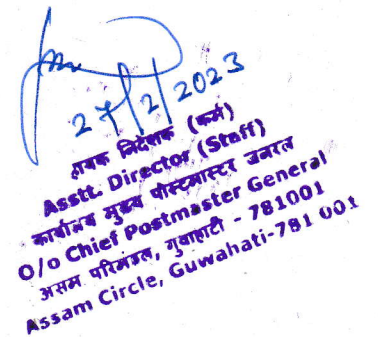 27/2/2023
सहायक निदेशक (कर्म)
Asstt. Director (Staff)
कार्यालय मुख्य पोस्टमास्टर जनरल
O/o Chief Postmaster General
असम परिमण्डल, गुवाहाटी - 781001
Assam Circle, Guwahati-781 001